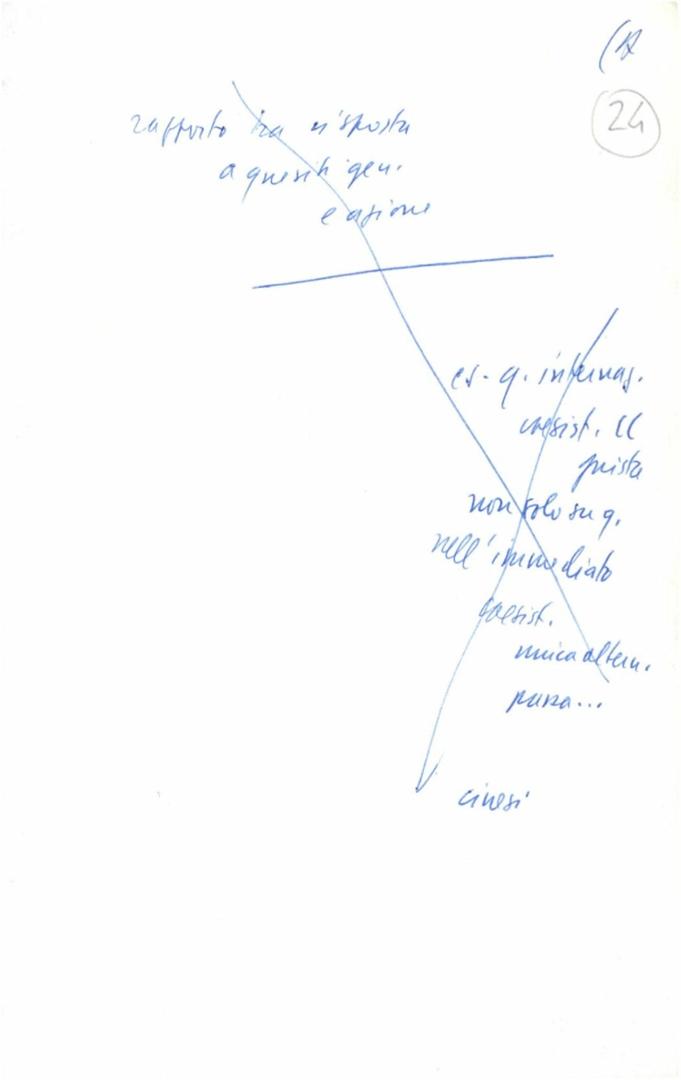 24
rapporto tra risposta
a quesiti gen.
e azione
es. q. internaz.
coesist.
giusta
non solo su q.
nell'immediato
coesist.
unica altern.
cinesi